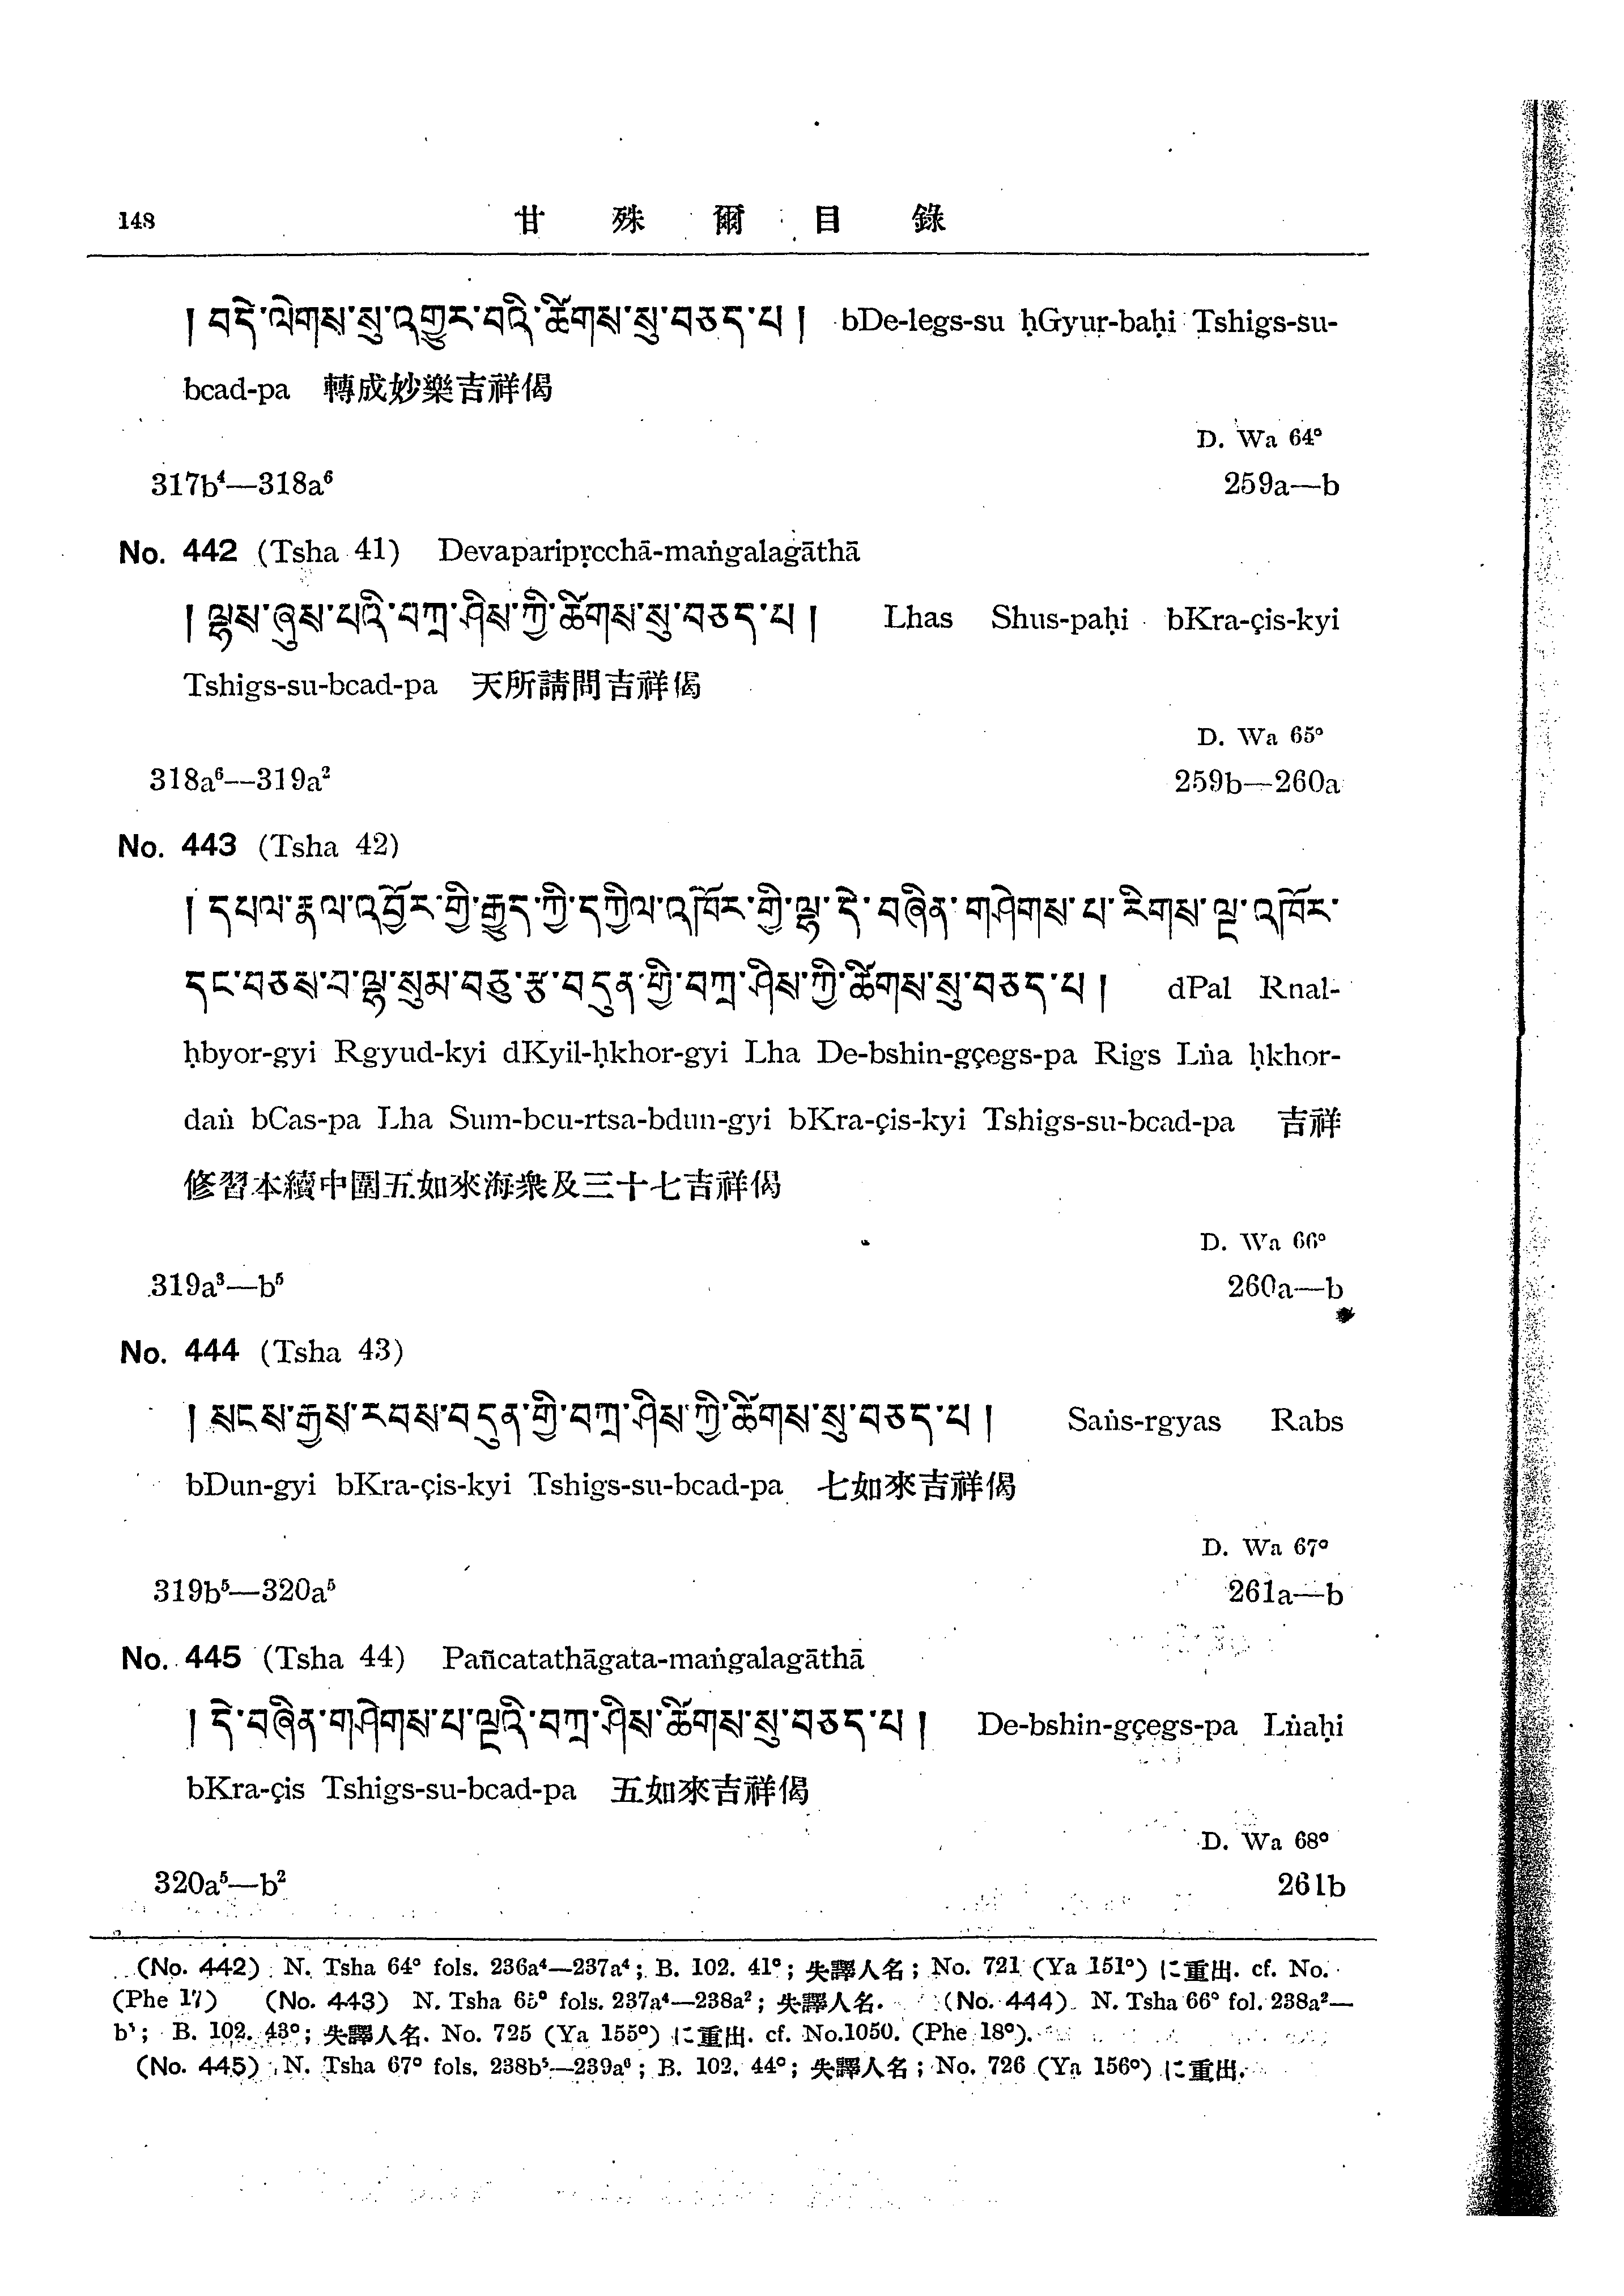 148 甘殊爾目錄
། བདེ་ལེགས་སུ་འགྱུར་བའི་ཚིགས་སུ་བཅད་པ། bDe-legs-su ḥGyur-baḥi Tshigs-su-
bcad-pa 轉成妙樂吉祥偈
D. Wa 64°
317b⁴—318a⁶ 259a—b
No. 442 (Tsha 41) Devaparipṛcchā-maṅgalagāthā
། ལྷས་ཞུས་པའི་བཀྲ་ཤིས་ཀྱི་ཚིགས་སུ་བཅད་པ། Lhas Shus-paḥi bKra-çis-kyi
Tshigs-su-bcad-pa 天所請問吉祥偈
D. Wa 65°
318a⁶—319a² 259b—260a
No. 443 (Tsha 42)
། དཔལ་རྣལ་འབྱོར་གྱི་རྒྱུད་ཀྱི་དཀྱིལ་འཁོར་གྱི་ལྷ་དེ་བཞིན་གཤེགས་པ་རིགས་ལྔ་འཁོར་
དང་བཅས་བ་ལྷ་སུམ་བཅུ་རྩ་བདུན་གྱི་བཀྲ་ཤིས་ཀྱི་ཚིགས་སུ་བཅད་པ། dPal Rnal-
ḥbyor-gyi Rgyud-kyi dKyil-ḥkhor-gyi Lha De-bshin-gçegs-pa Rigs Lṅa ḥkhor-
daṅ bCas-pa Lha Sum-bcu-rtsa-bdun-gyi bKra-çis-kyi Tshigs-su-bcad-pa 吉祥
修習本續中圍五如來海衆及三十七吉祥偈
D. Wa 66°
319a³—b⁵ 260a—b
No. 444 (Tsha 43)
། སངས་རྒྱས་རབས་བདུན་གྱི་བཀྲ་ཤིས་ཀྱི་ཚིགས་སུ་བཅད་པ། Saṅs-rgyas Rabs
bDun-gyi bKra-çis-kyi Tshigs-su-bcad-pa 七如來吉祥偈
D. Wa 67°
319b⁵—320a⁵ 261a—b
No. 445 (Tsha 44) Pañcatathāgata-maṅgalagāthā
། དེ་བཞིན་གཤེགས་པ་ལྔའི་བཀྲ་ཤིས་ཚིགས་སུ་བཅད་པ། De-bshin-gçegs-pa Lṅaḥi
bKra-çis Tshigs-su-bcad-pa 五如來吉祥偈
D. Wa 68°
320a⁵—b² 261b
(No. 442) N. Tsha 64° fols. 236a⁴—237a⁴; B. 102. 41°; 失譯人名; No. 721 (Ya 151°) に重出. cf. No.
(Phe 17) (No. 443) N. Tsha 65° fols. 237a⁴—238a²; 失譯人名. (No. 444) N. Tsha 66° fol. 238a²—
b⁵; B. 102. 43°; 失譯人名. No. 725 (Ya 155°) に重出. cf. No.1050. (Phe 18°).
(No. 445) N. Tsha 67° fols. 238b⁵—239a⁶; B. 102. 44°; 失譯人名; No. 726 (Ya 156°) に重出.